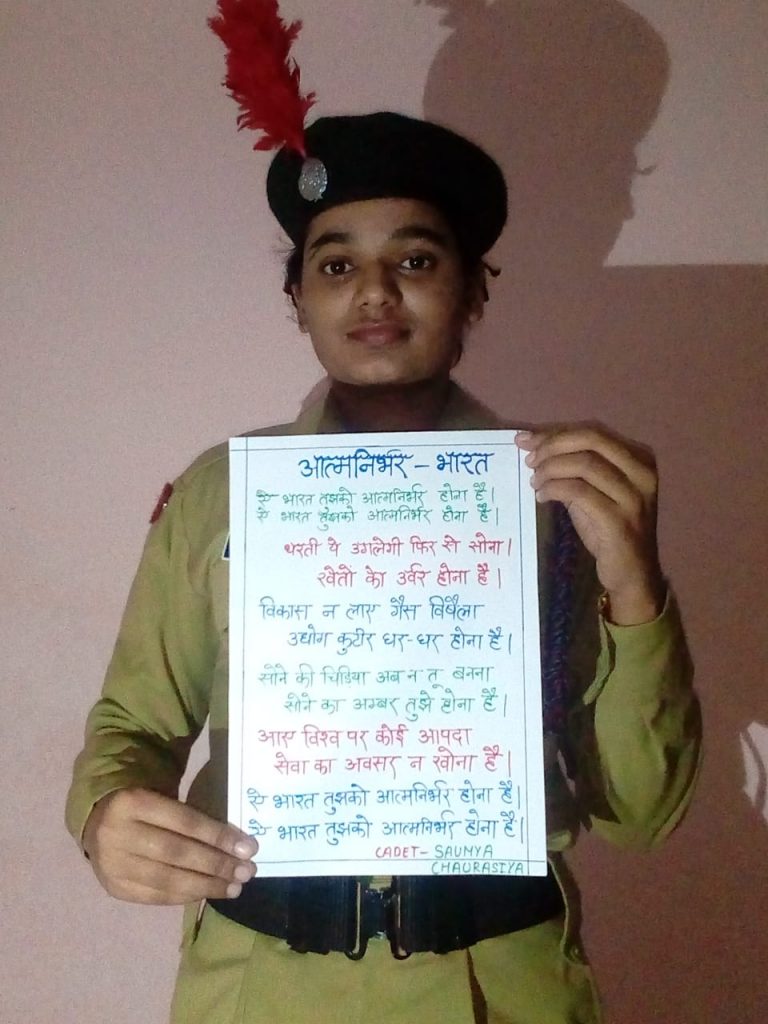 आत्मनिर्भर - भारत
ऐ भारत तुझको आत्मनिर्भर होना है।
ऐ भारत तुझको आत्मनिर्भर होना है।
धरती ये उगलेगी फिर से सोना।
खेतों को उर्वर होना है।
विकास न लाए गैस विषैला
उद्योग कुटीर घर-घर होना है।
सोने की चिड़िया अब न तू बनना
सोने का अम्बर तुझे होना है।
आए विश्व पर कोई आपदा
सेवा का अवसर न खोना है।
ऐ भारत तुझको आत्मनिर्भर होना है।
ऐ भारत तुझको आत्मनिर्भर होना है।
CADET- SAUMYA
CHAURASIYA